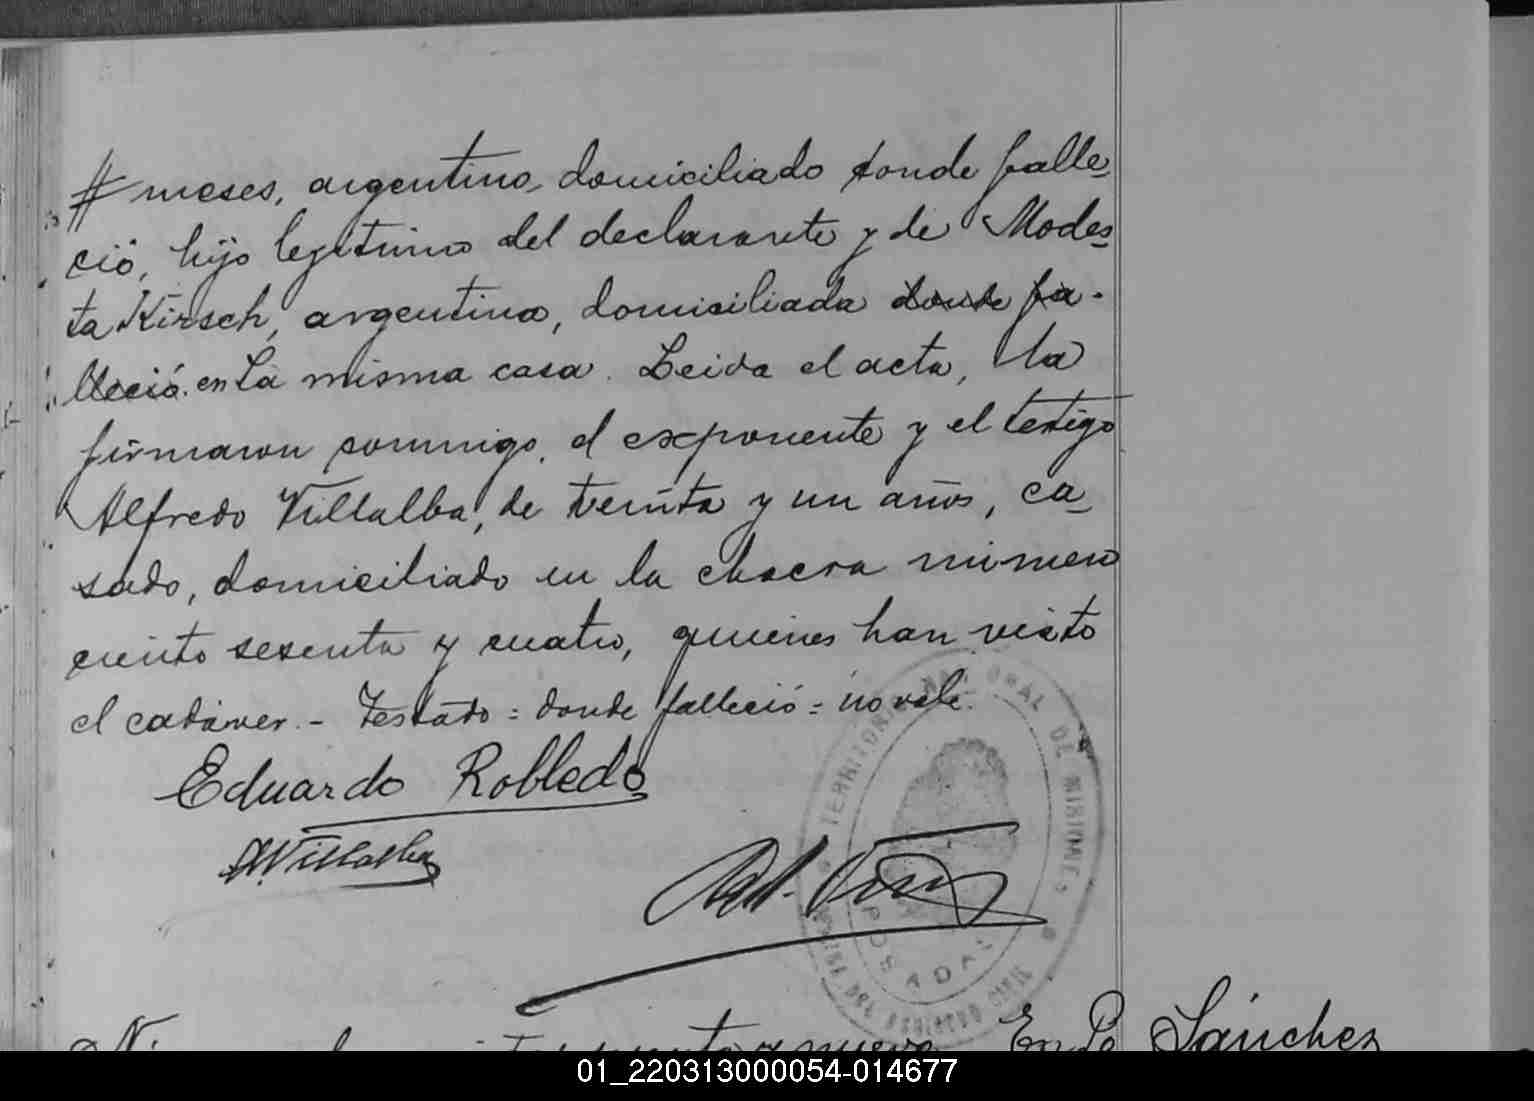 # meses, argentino, domiciliado donde falle-
ció, hijo legítimo del declarante y de Modes-
ta Kirsch, argentina, domiciliada donde fa-
lleció. en la misma casa. Leida el acta, la
firmaron conmigo, el exponente y el testigo
Alfredo Villalba, de treinta y un años, ca-
sado, domiciliado en la chacra número
ciento sesenta y cuatro, quienes han visto
el cadáver. - Testado = donde falleció = no vale.
Eduardo Robledo
AVillalba
TERRITORIO NACIONAL DE MISIONES
POSADAS
y nueve
En Po
Sánchez
01_220313000054-014677